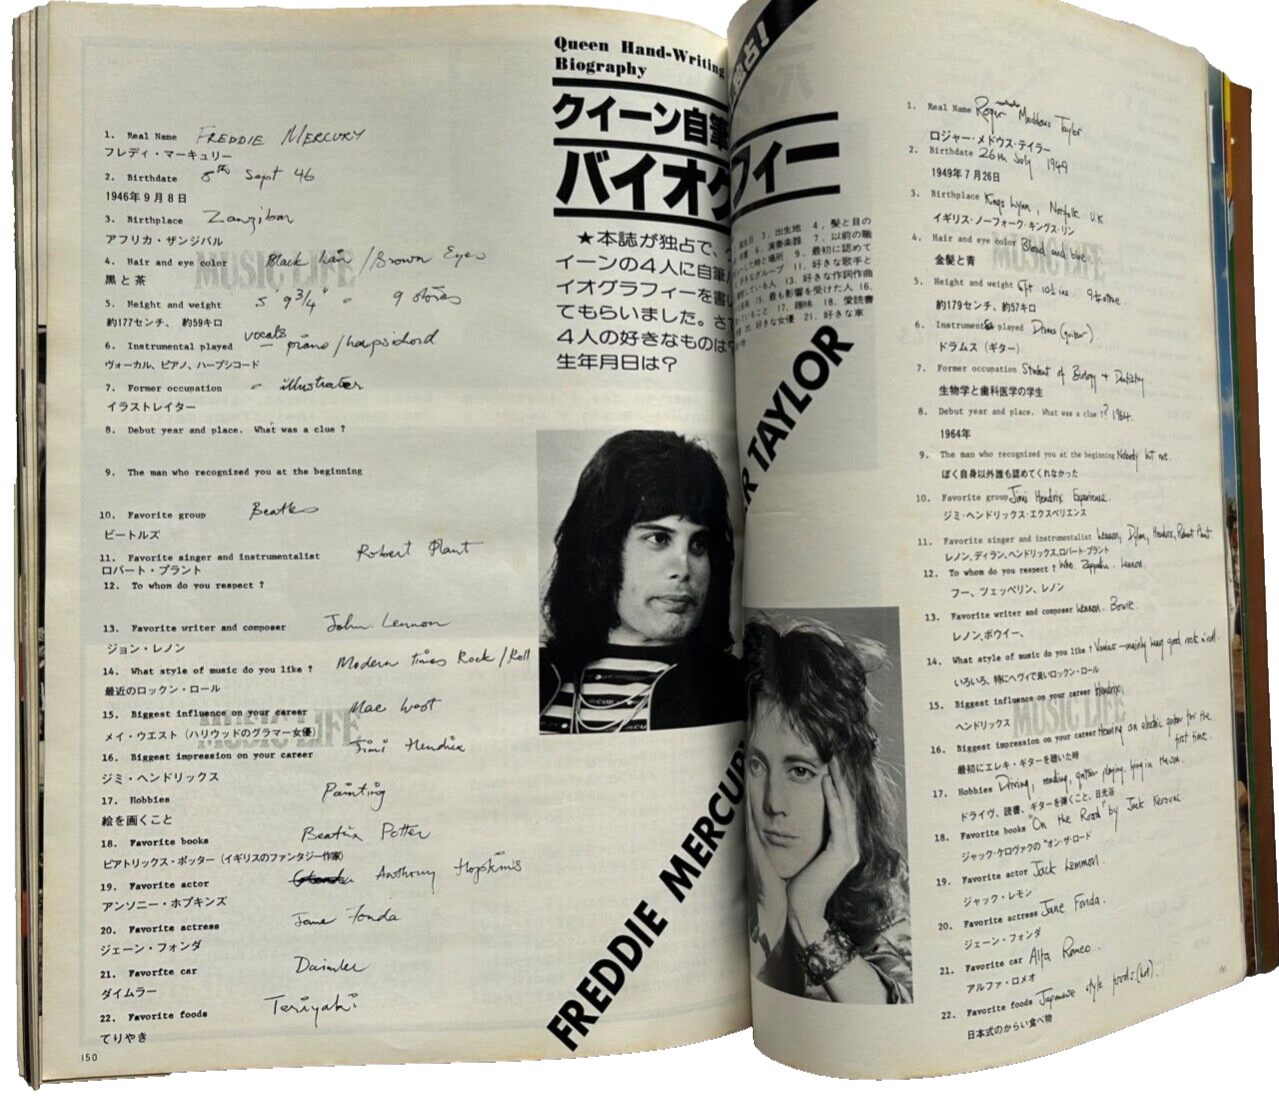 Queen Hand-Writing
Biography
クイーン自筆
バイオグ
★本誌が独占で、ク
イーンの4人に自筆バ
イオグラフィーを書い
てもらいました。さて
4人の好きなものは?
生年月日は?
1. Real Name FREDDIE MERCURY
フレディ・マーキュリー
2. Birthdate 5th Sept 46
1946年9月8日
3. Birthplace Zanzibar
アフリカ・ザンジバル
4. Hair and eye color Black hair / Brown Eyes
黒と茶
5. Height and weight 5' 9 3/4" = 9 stones
約177センチ、約59キロ
6. Instrumental played vocals piano / harpsichord
ヴォーカル、ピアノ、ハープシコード
7. Former occupation - illustrator
イラストレイター
8. Debut year and place. What was a clue ?
9. The man who recognized you at the beginning
10. Favorite group Beatles
ビートルズ
11. Favorite singer and instrumentalist Robert Plant
ロバート・プラント
12. To whom do you respect ?
13. Favorite writer and composer John Lennon
ジョン・レノン
14. What style of music do you like ? Modern times Rock / Roll
最近のロックン・ロール
15. Biggest influence on your career Mae West
メイ・ウエスト(ハリウッドのグラマー女優)
16. Biggest impression on your career Jimi Hendrix
ジミ・ヘンドリックス
17. Hobbies Painting
絵を画くこと
18. Favorite books Beatrix Potter
ピアトリックス・ポッター(イギリスのファンタジー作家)
19. Favorite actor Anthony Hopkins
アンソニー・ホプキンズ
20. Favorite actress Jane Fonda
ジェーン・フォンダ
21. Favorite car Daimler
ダイムラー
22. Favorite foods Teriyaki
てりやき
150
FREDDIE MERCURY
フィー
占!
3. 出生地 4. 髪と目の
6. 演奏楽器 7. 以前の職
9. 最初に認めて
11. 好きな歌手と
13. 好きな作詞作曲
15. 最も影響を受けた人 16.
17. 趣味 18. 愛読書
20. 好きな女優 21. 好きな車
R TAYLOR
1. Real Name Roger Meddows Taylor
ロジャー・メドウス・テイラー
2. Birthdate 26th July 1949
1949年7月26日
3. Birthplace Kings Lynn, Norfolk U.K.
イギリス・ノーフォーク・キングス・リン
4. Hair and eye color Blond and blue
金髪と青
5. Height and weight 5ft 10½ ins. 9 stone.
約179センチ、約57キロ
6. Instrumental played Drums (guitar)
ドラムス(ギター)
7. Former occupation Student of Biology + Dentistry
生物学と歯科医学の学生
8. Debut year and place. What was a clue !? 1964.
1964年
9. The man who recognized you at the beginning Nobody but me.
ぼく自身以外誰も認めてくれなかった
10. Favorite group Jimi Hendrix Experience.
ジミ・ヘンドリックス・エクスペリエンス
11. Favorite singer and instrumentalist Lennon, Dylan, Hendrix, Robert Plant.
レノン、ディラン、ヘンドリックス、ロバート・プラント
12. To whom do you respect ? Who. Zeppelin. Lennon.
フー、ツェッペリン、レノン
13. Favorite writer and composer Lennon. Bowie.
レノン、ボウイー、
14. What style of music do you like ? Various – mainly heavy good rock n' roll.
いろいろ、特にヘヴィで良いロックン・ロール
15. Biggest influence on your career Hendrix
ヘンドリックス
16. Biggest impression on your career Hearing an electric guitar for the
first time.
最初にエレキ・ギターを聴いた時
17. Hobbies Driving, reading, guitar playing, lying in the sun.
ドライヴ、読書、ギターを弾くこと、日光浴
18. Favorite books "On the Road" by Jack Kerouac
ジャック・ケロヴァクの"オン・ザ・ロード
19. Favorite actor Jack Lemmon.
ジャック・レモン
20. Favorite actress Jane Fonda.
ジェーン・フォンダ
21. Favorite car Alfa Romeo.
アルファ・ロメオ
22. Favorite foods Japanese style foods. (hot).
日本式のからい食べ物
151
MUSIC LIFE
MUSIC LIFE
MUSIC LIFE
MUSIC LIFE